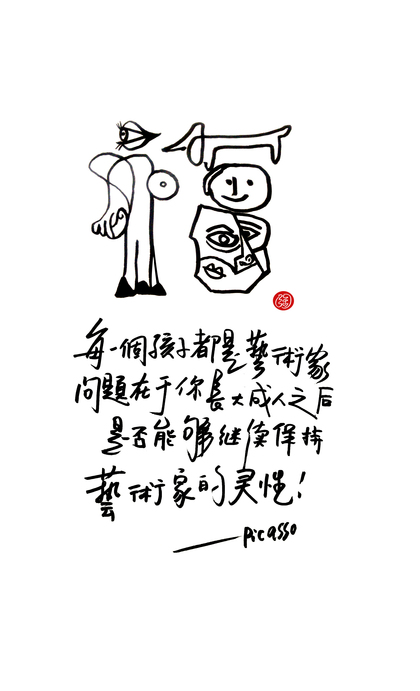 每一個孩子都是藝術家
問題在于你長大成人之后
是否能够继续保持
藝術家的灵性！
——Picasso